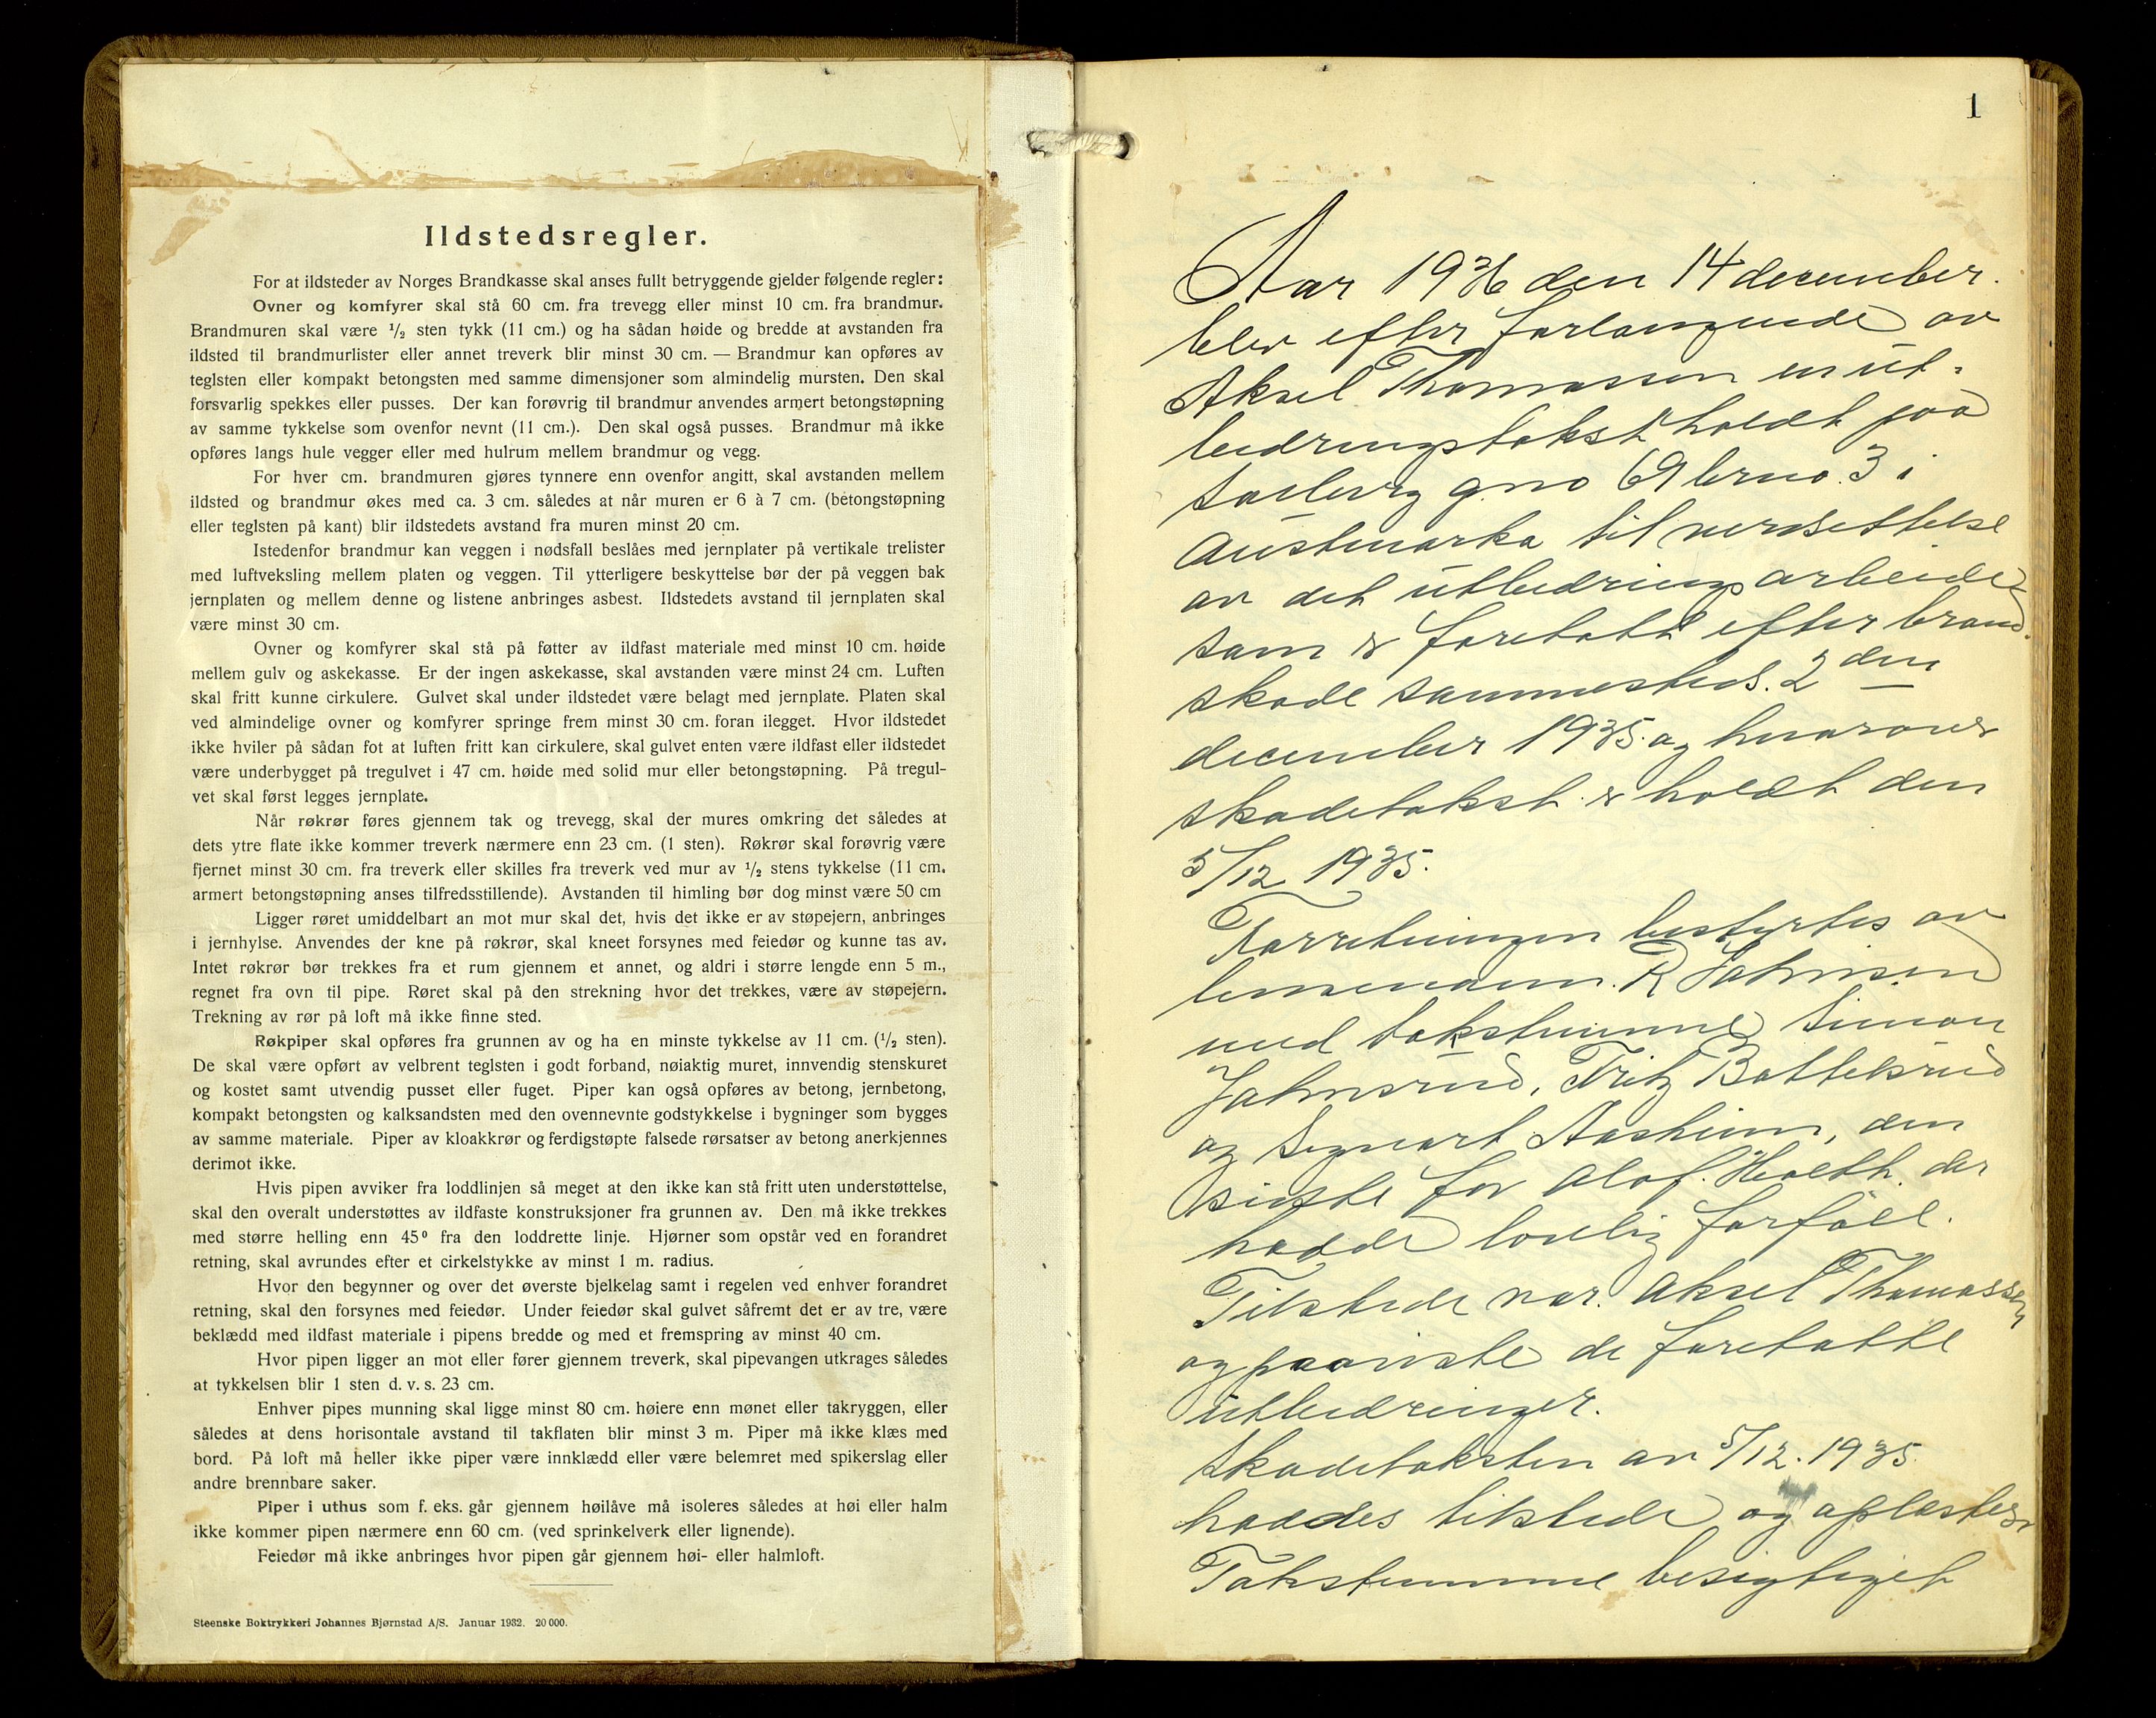 Ildstedsregler.
For at ildsteder av Norges Brandkasse skal anses fullt betryggende gjelder følgende regler:
Ovner og komfyrer skal stå 60 cm. fra trevegg eller minst 10 cm. fra brandmur.
Brandmuren skal være ½ sten tykk (11 cm.) og ha sådan høide og bredde at avstanden fra
ildsted til brandmurlister eller annet treverk blir minst 30 cm. — Brandmur kan opføres av
teglsten eller kompakt betongsten med samme dimensjoner som almindelig mursten. Den skal
forsvarlig spekkes eller pusses. Der kan forøvrig til brandmur anvendes armert betongstøpning
av samme tykkelse som ovenfor nevnt (11 cm.). Den skal også pusses. Brandmur må ikke
opføres langs hule vegger eller med hulrum mellem brandmur og vegg.
For hver cm. brandmuren gjøres tynnere enn ovenfor angitt, skal avstanden mellem
ildsted og brandmur økes med ca. 3 cm. således at når muren er 6 à 7 cm. (betongstøpning
eller teglsten på kant) blir ildstedets avstand fra muren minst 20 cm.
Istedenfor brandmur kan veggen i nødsfall beslåes med jernplater på vertikale trelister
med luftveksling mellem platen og veggen. Til ytterligere beskyttelse bør der på veggen bak
jernplaten og mellem denne og listene anbringes asbest. Ildstedets avstand til jernplaten skal
være minst 30 cm.
Ovner og komfyrer skal stå på føtter av ildfast materiale med minst 10 cm. høide
mellem gulv og askekasse. Er der ingen askekasse, skal avstanden være minst 24 cm. Luften
skal fritt kunne cirkulere. Gulvet skal under ildstedet være belagt med jernplate. Platen skal
ved almindelige ovner og komfyrer springe frem minst 30 cm. foran ilegget. Hvor ildstedet
ikke hviler på sådan fot at luften fritt kan cirkulere, skal gulvet enten være ildfast eller ildstedet
være underbygget på tregulvet i 47 cm. høide med solid mur eller betongstøpning. På tregul-
vet skal først legges jernplate.
Når røkrør føres gjennem tak og trevegg, skal der mures omkring det således at
dets ytre flate ikke kommer treverk nærmere enn 23 cm. (1 sten). Røkrør skal forøvrig være
fjernet minst 30 cm. fra treverk eller skilles fra treverk ved mur av ½ stens tykkelse (11 cm.
armert betongstøpning anses tilfredsstillende). Avstanden til himling bør dog minst være 50 cm
Ligger røret umiddelbart an mot mur skal det, hvis det ikke er av støpejern, anbringes
i jernhylse. Anvendes der kne på røkrør, skal kneet forsynes med feiedør og kunne tas av.
Intet røkrør bør trekkes fra et rum gjennem et annet, og aldri i større lengde enn 5 m.,
regnet fra ovn til pipe. Røret skal på den strekning hvor det trekkes, være av støpejern.
Trekning av rør på loft må ikke finne sted.
Røkpiper skal opføres fra grunnen av og ha en minste tykkelse av 11 cm. (½ sten).
De skal være opført av velbrent teglsten i godt forband, nøiaktig muret, innvendig stenskuret
og kostet samt utvendig pusset eller fuget. Piper kan også opføres av betong, jernbetong,
kompakt betongsten og kalksandsten med den ovennevnte godstykkelse i bygninger som bygges
av samme materiale. Piper av kloakkrør og ferdigstøpte falsede rørsatser av betong anerkjennes
derimot ikke.
Hvis pipen avviker fra loddlinjen så meget at den ikke kan stå fritt uten understøttelse,
skal den overalt understøttes av ildfaste konstruksjoner fra grunnen av. Den må ikke trekkes
med større helling enn 45⁰ fra den loddrette linje. Hjørner som opstår ved en forandret
retning, skal avrundes efter et cirkelstykke av minst 1 m. radius.
Hvor den begynner og over det øverste bjelkelag samt i regelen ved enhver forandret
retning, skal den forsynes med feiedør. Under feiedør skal gulvet såfremt det er av tre, være
beklædd med ildfast materiale i pipens bredde og med et fremspring av minst 40 cm.
Hvor pipen ligger an mot eller fører gjennem treverk, skal pipevangen utkrages således
at tykkelsen blir 1 sten d. v. s. 23 cm.
Enhver pipes munning skal ligge minst 80 cm. høiere enn mønet eller takryggen, eller
således at dens horisontale avstand til takflaten blir minst 3 m. Piper må ikke klæs med
bord. På loft må heller ikke piper være innklædd eller være belemret med spikerslag eller
andre brennbare saker.
Piper i uthus som f. eks. går gjennem høilåve må isoleres således at høi eller halm
ikke kommer pipen nærmere enn 60 cm. (ved sprinkelverk eller lignende).
Feiedør må ikke anbringes hvor pipen går gjennem høi- eller halmloft.
Steenske Boktrykkeri Johannes Bjørnstad A/S. Januar 1932. 20 000.
1
Aar 1936 den 14 december.
blev efter forlangende av
Aksel Thomassen en ut-
bedringstakst holdt paa
Solberg g.no 69 brno. 3 i
Austmarka til verdsettelse
av det utbedringsarbeide
som er foretatt efter brand-
skade sammesteds. 2den
december 1935 og hvorover
skadetakst er holdt den
5/12 1935.
Forretningen bestyrtes av
lensmann. R Johnsen
med takstmenne Simon
Johnsrud, Fritz Bottelsrud
og Sigvart Aasheim, den
sidste for Olof. Holth. der
hadde lovlig forfall.
Tilstede var. Aksel Thomassen
og paaviste de foretatte
utbedringer.
Skadetaksten av 5/12. 1935.
haddes tilstede og oplæstes
Takstmenne besigtiget